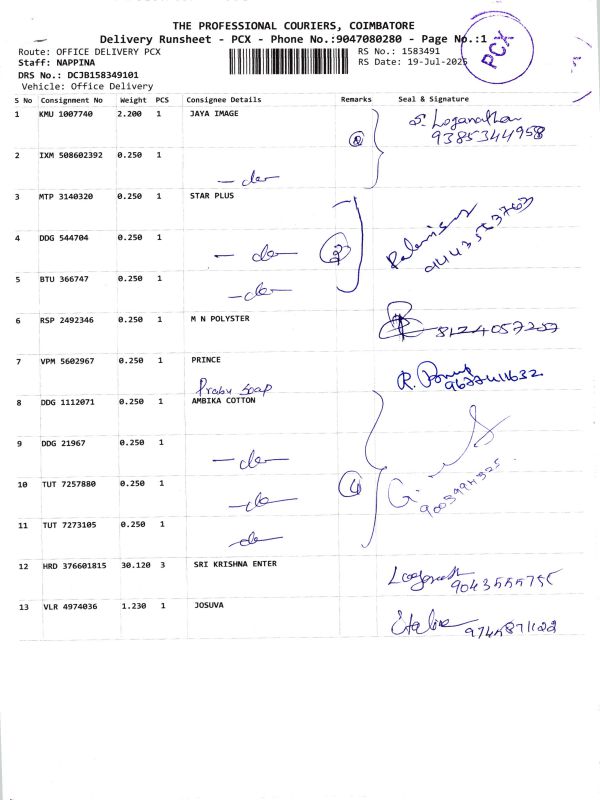 THE PROFESSIONAL COURIERS, COIMBATORE
Delivery Runsheet - PCX - Phone No.:9047080280 - Page No.:1
Route: OFFICE DELIVERY PCX RS No.: 1583491
Staff: NAPPINA RS Date: 19-Jul-2025
DRS No.: DCJB158349101
Vehicle: Office Delivery
PCX
S No Consignment No Weight PCS Consignee Details Remarks Seal & Signature
1 KMU 1007740 2.200 1 JAYA IMAGE S. Loganathan
9385344958
2 IXM 508602392 0.250 1
- do -
3 MTP 3140320 0.250 1 STAR PLUS
4 DDG 544704 0.250 1 - do - 3
5 BTU 366747 0.250 1 - do -
6 RSP 2492346 0.250 1 M N POLYSTER 8124057257
7 VPM 5602967 0.250 1 PRINCE R.
Prabu Soap
8 DDG 1112071 0.250 1 AMBIKA COTTON
9 DDG 21967 0.250 1
- do -
10 TUT 7257880 0.250 1 4
- do -
11 TUT 7273105 0.250 1
- do -
12 HRD 376601815 30.120 3 SRI KRISHNA ENTER
9043555755
13 VLR 4974036 1.230 1 JOSUVA
9745871122